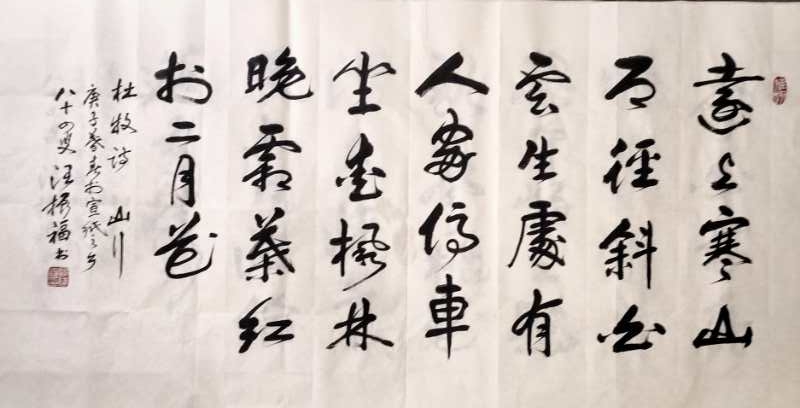 遠上寒山
石徑斜白
雲生處有
人家停車
坐愛楓林
晚霜葉紅
於二月花
杜牧诗 山行
庚子暮春於宣纸之乡
八十四叟汪振福书